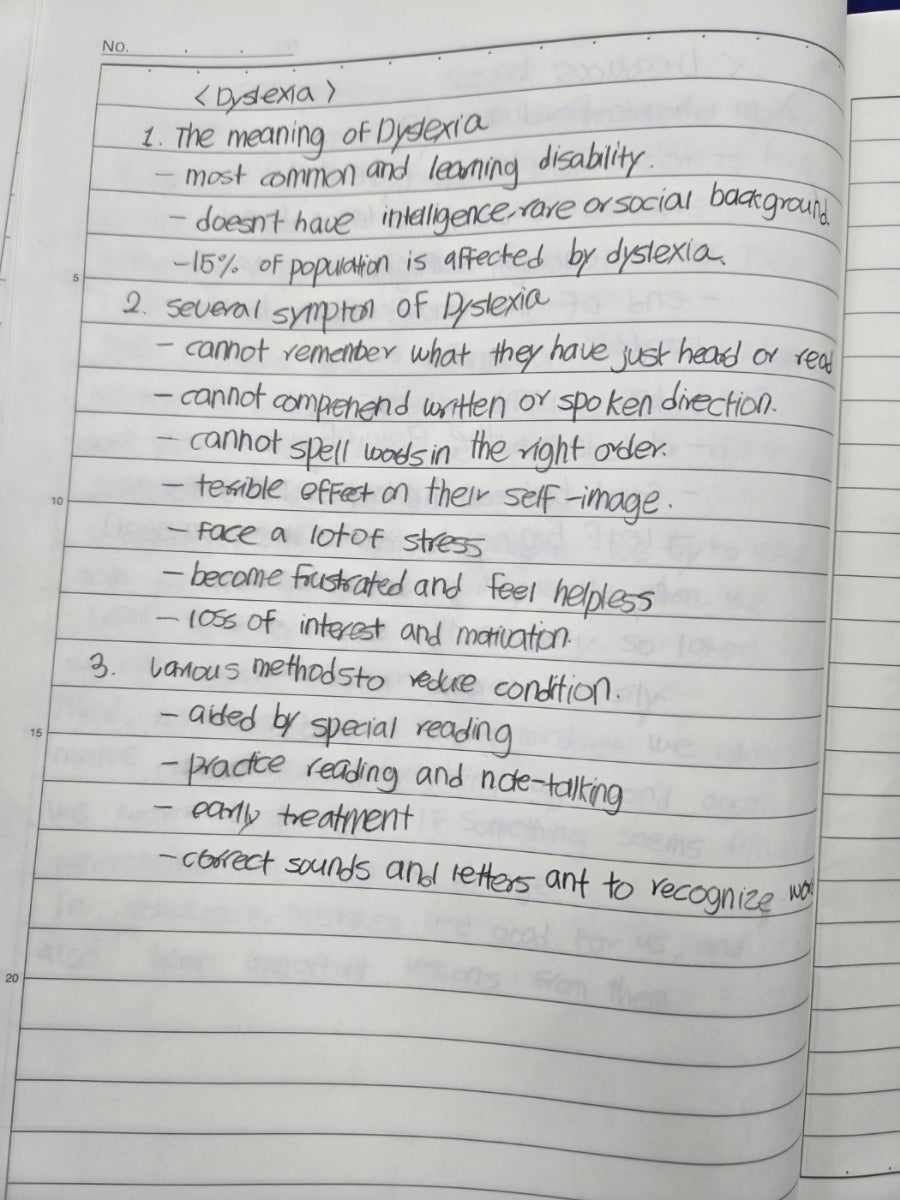 No.
<Dyslexia>
1. The meaning of Dyslexia
- most common and learning disability.
- doesn't have intelligence, rare or social background
5
-15% of population is affected by dyslexia.
2. several sympton of Dyslexia
- cannot remember what they have just heard or read
- cannot comprehend written or spoken direction.
- cannot spell words in the right order.
10
- terrible effect on their self-image.
- Face a lot of stress
- become frustrated and feel helpless
- loss of interest and motivation.
3. various methods to reduce condition.
15
- aided by special reading
- practice reading and note-talking
- early treatment
- correct sounds and letters ant to recognize
20